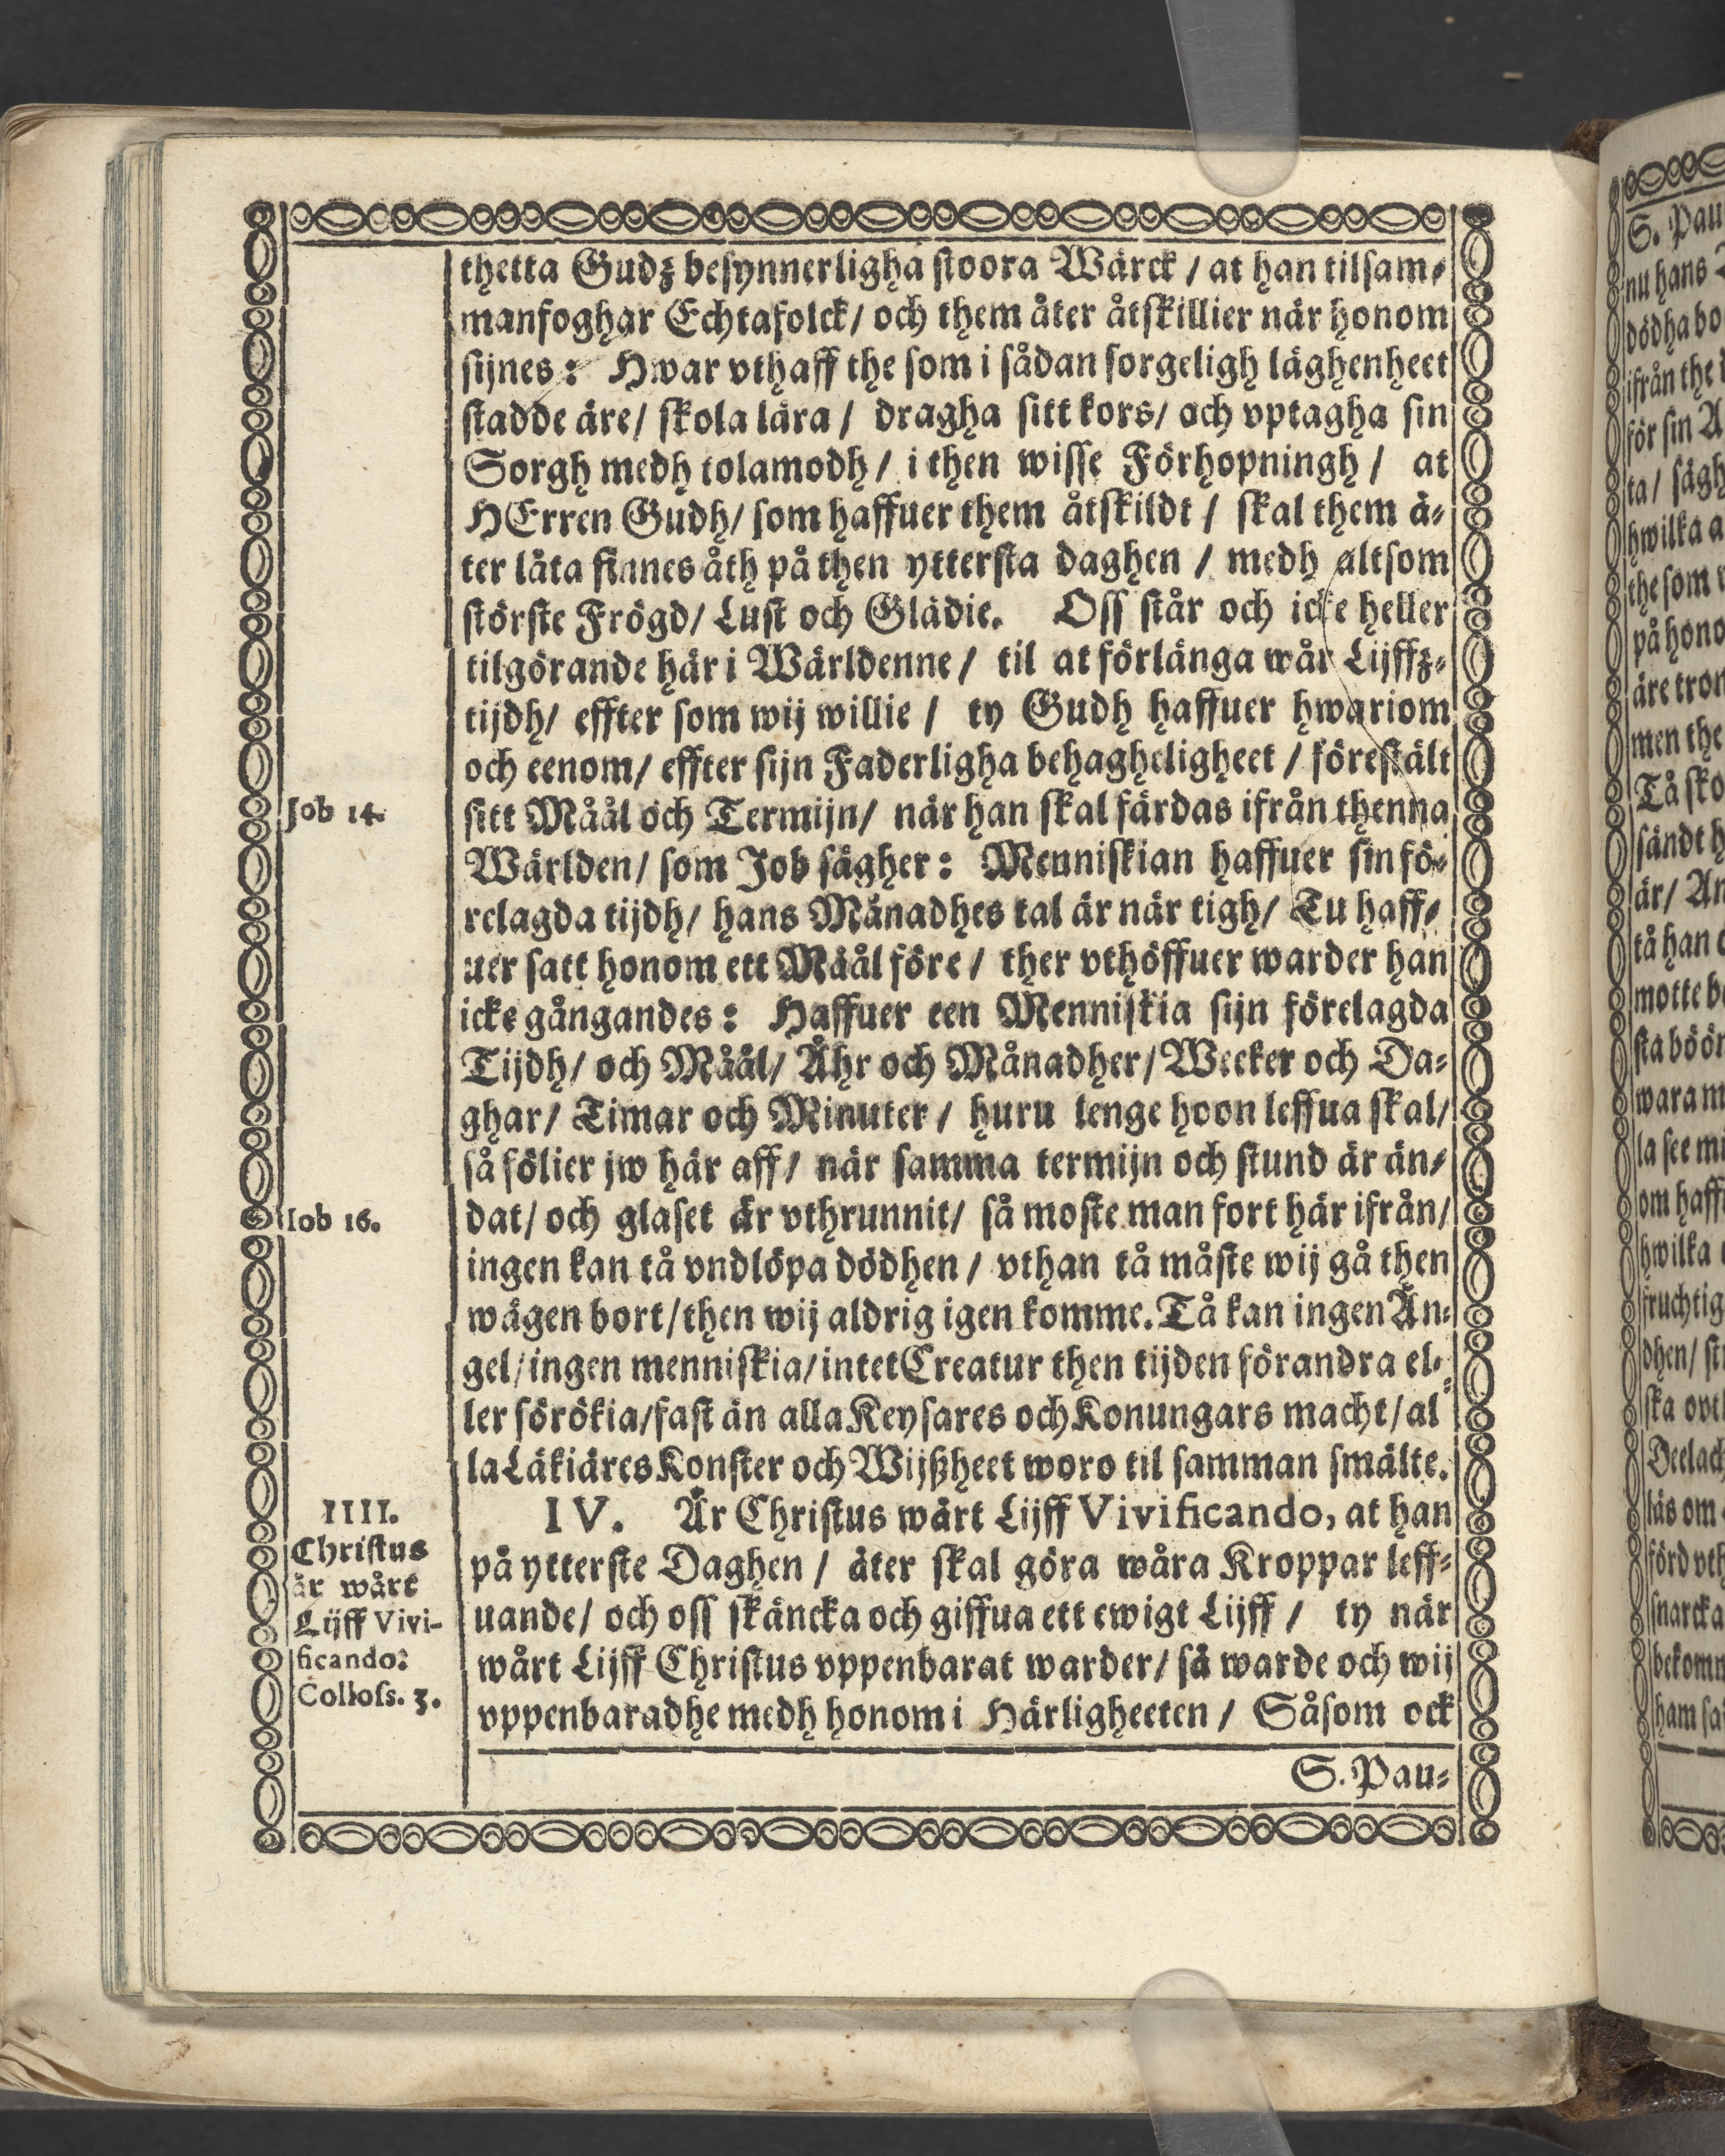 thetta Gudz besynnerligha stoora Wärck / at han tilsam-
manfoghar Echtafolck / och them åter åtskillier när honom
sijnes : Hwar vthaff the som i sådan sorgeligh läghenheet
stadde äre / skola lära / dragha sitt kors / och vptagha sin
Sorgh medh tolamodh / i then wisse Förhopningh / at
HErren Gudh / som haffuer them åtskildt / skal them å-
ter låta finnes åth på then yttersta daghen / medh altsom
störste Frögd / Lust och Glädie. Oss står och icke heller
tilgörande här i Wärldenne / til at förlänga wår Lijffz-
tijdh / effter som wij willie / ty Gudh haffuer hwariom
och eenom / effter sijn Faderligha behagheligheet / förestält
Job 14.
sitt Måål och Termijn / när han skal färdas ifrån thenna
Wärlden / som Job sägher : Menniskian haffuer sin fö-
relagda tijdh / hans Månadhes tal är när tigh / Tu haff-
uer satt honom ett Måål före / ther vthöffuer warder han
icke gångandes : Haffuer een Menniskia sijn förelagda
Tijdh / och Måål / Åhr och Månadher / Weeker och Da-
ghar / Timar och Minuter / huru lenge hoon leffua skal /
så fölier jw här aff / när samma termijn och stund är än-
Iob 16.
dat / och glaset är vthrunnit / så moste man fort här ifrån /
ingen kan tå vndlöpa dödhen / vthan tå måste wij gå then
wägen bort / then wij aldrig igen komme. Tå kan ingen Än-
gel / ingen menniskia / intet Creatur then tijden förandra el-
ler förökia / fast än alla Keysares och Konungars macht / al
la Läkiäres Konster och Wijßheet woro til samman smälte.
IIII.
Christus
är wårt
Lijff Vivi-
ficando:
Colloss. 3.
IV. Är Christus wårt Lijff Vivificando, at han
på ytterste Daghen / åter skal göra wåra Kroppar leff-
uande / och oss skäncka och giffua ett ewigt Lijff / ty när
wårt Lijff Christus vppenbarat warder / så warde och wij
vppenbaradhe medh honom i Härligheeten / Såsom ock
S. Pau-